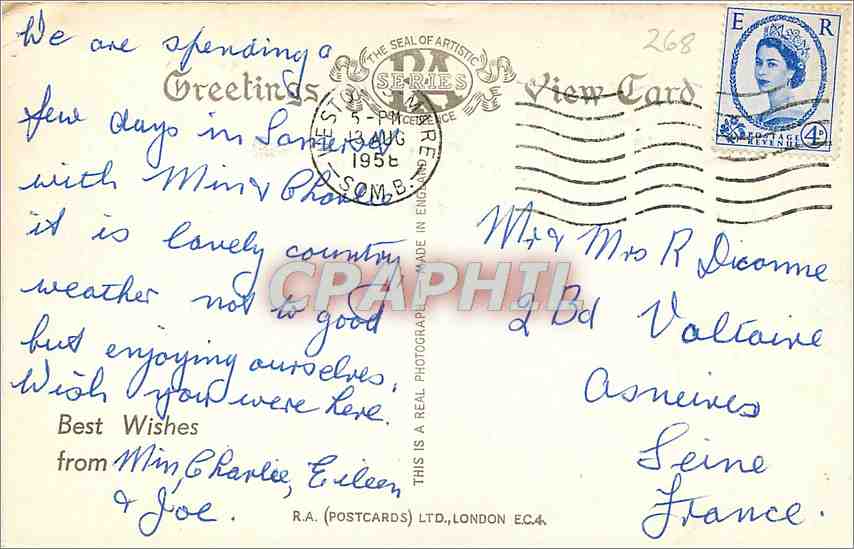 We are spending a
few days in Somerset
with Min & Charlie
it is lovely country
weather not to good
but enjoying ourselves.
Wish you were here.
Best Wishes
from Min, Charlie, Eileen
& Joe.
Greetings
THE SEAL OF ARTISTIC
RA
SERIES
EXCELLENCE
View Card
268
E R
POSTAGE
REVENUE
4D
WESTON MARE
5-PM
12 AUG
1958
SOM.B.
THIS IS A REAL PHOTOGRAPH MADE IN ENGLAND
CPAPHIL
Mr & Mrs R Diconne
2 Bd Voltaire
Asneires
Seine
France.
R.A. (POSTCARDS) LTD., LONDON E.C.4.